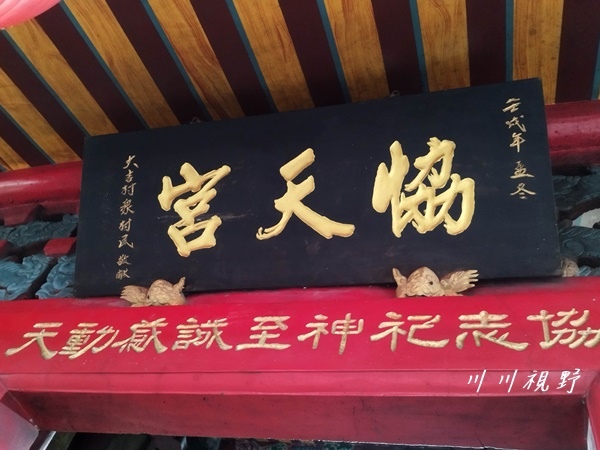 壬戌年孟冬
協天宮
大吉村眾村民敬獻
協志祀神至誠感動天
川川視野